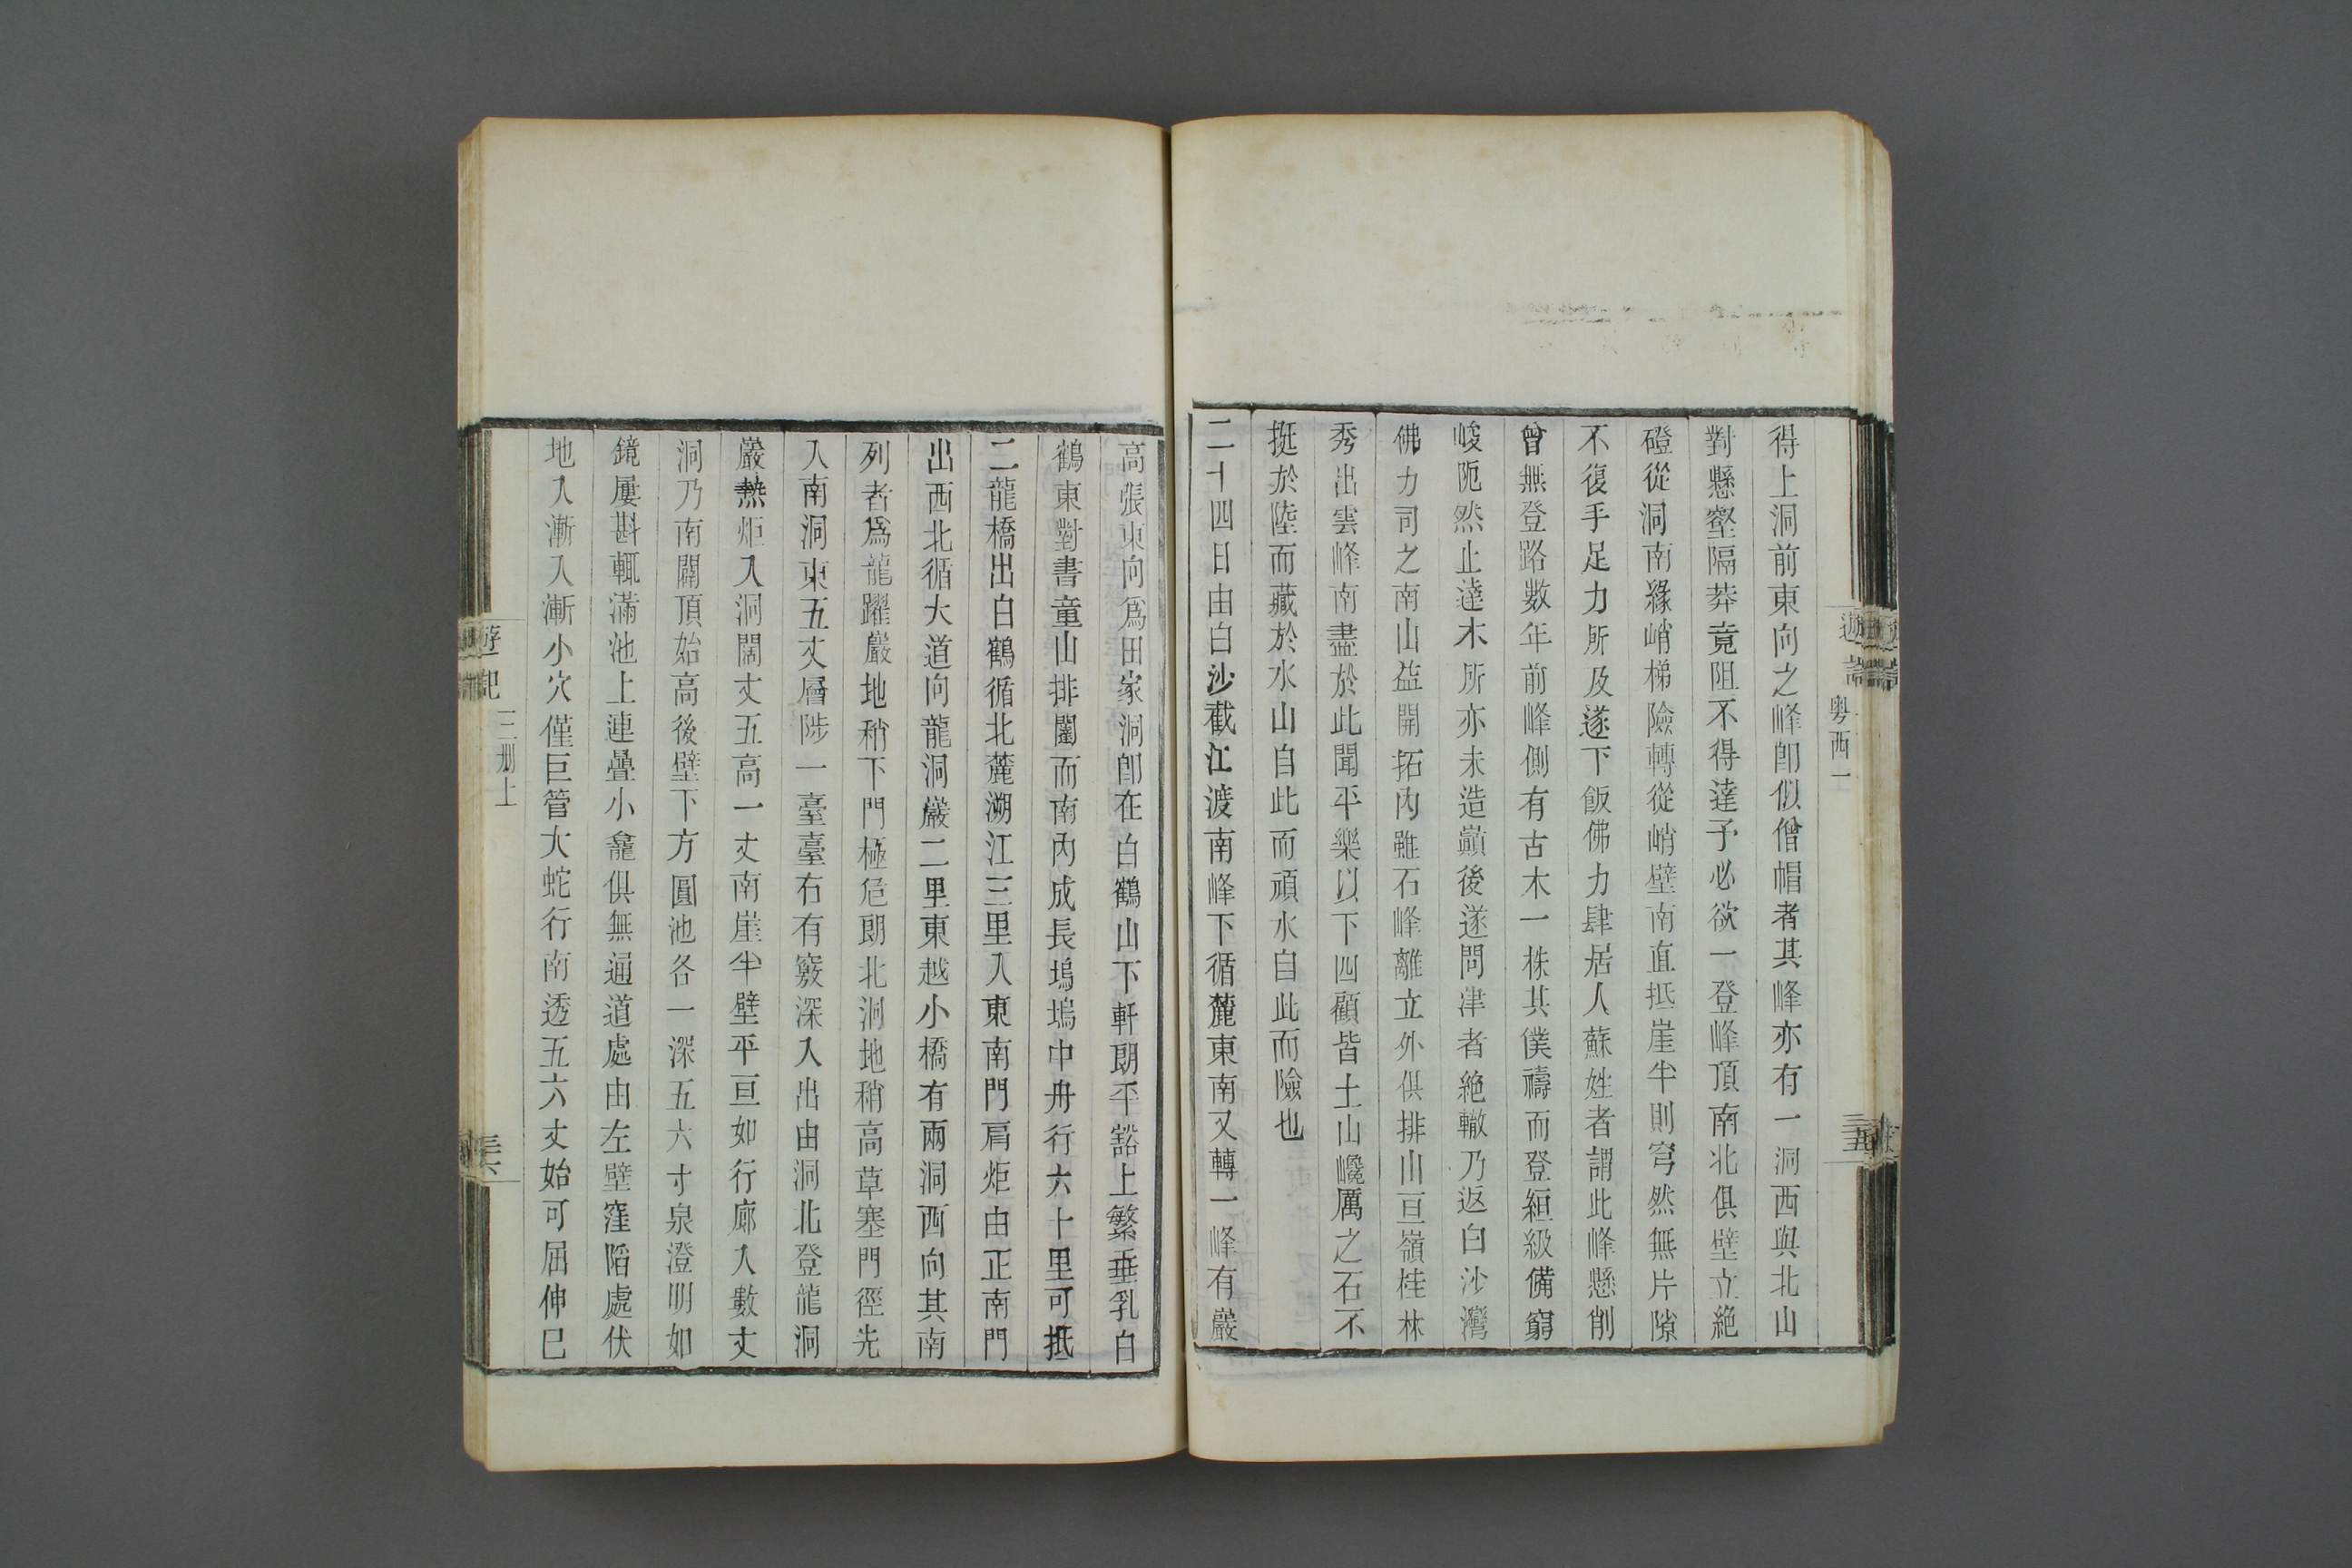 遊記 粤西一 三五
得上洞前東向之峰卽似僧帽者其峰亦有一洞西與北山
對懸壑隔莽竟阻不得達予必欲一登峰頂南北俱壁立絶
磴從洞南緣峭梯險轉從峭壁南直抵崖半則穹然無片隙
不復手足力所及遂下飯佛力肆居人蘇姓者謂此峰懸削
曾無登路數年前峰側有古木一株其僕禱而登絙級備窮
峻阨然止達木所亦未造巔後遂問津者絶轍乃返白沙灣
佛力司之南山益開拓內雖石峰離立外俱排山亘嶺桂林
秀出雲峰南盡於此聞平樂以下四顧皆土山巉厲之石不
挺於陸而藏於水山自此而頑水自此而險也
二十四日由白沙截江渡南峰下循麓東南又轉一峰有巖
高張東向爲田家洞卽在白鶴山下軒朗平豁上繁垂乳白
鶴東對書童山排闥而南內成長塢塢中舟行六十里可抵
二龍橋出白鶴循北麓溯江三里入東南門肩炬由正南門
出西北循大道向龍洞巖二里東越小橋有兩洞西向其南
列者爲龍躍巖地稍下門極危朗北洞地稍高草塞門徑先
入南洞東五丈層陟一臺臺右有竅深入出由洞北登龍洞
巖爇炬入洞闊丈五高一丈南崖半壁平亘如行廊入數丈
洞乃南闢頂始高後壁下方圓池各一深五六寸泉澄明如
鏡屢斟輒滿池上連疊小龕俱無通道處由左壁窪陷處伏
地入漸入漸小穴僅巨管大蛇行南透五六丈始可屈伸已
遊記 三册上 三六